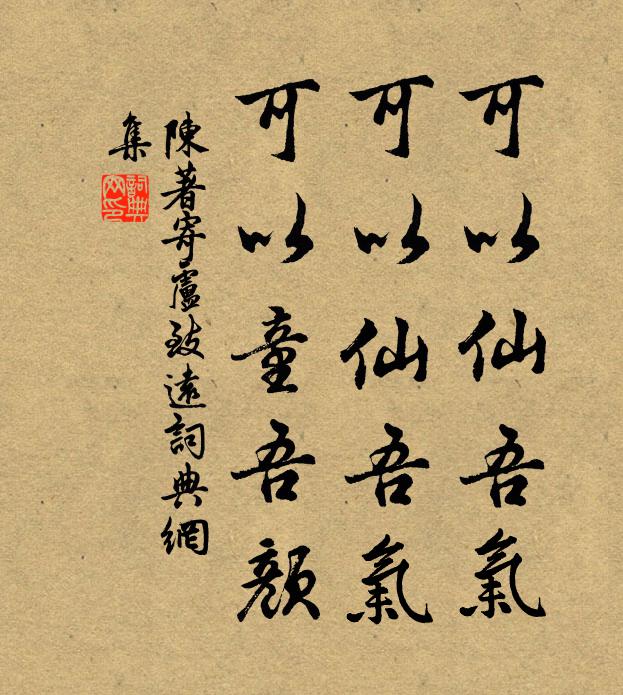 可以仙吾氣
可以仙吾氣
可以童吾顏
陳著寄盧致遠詞典網
集
詞典
网印